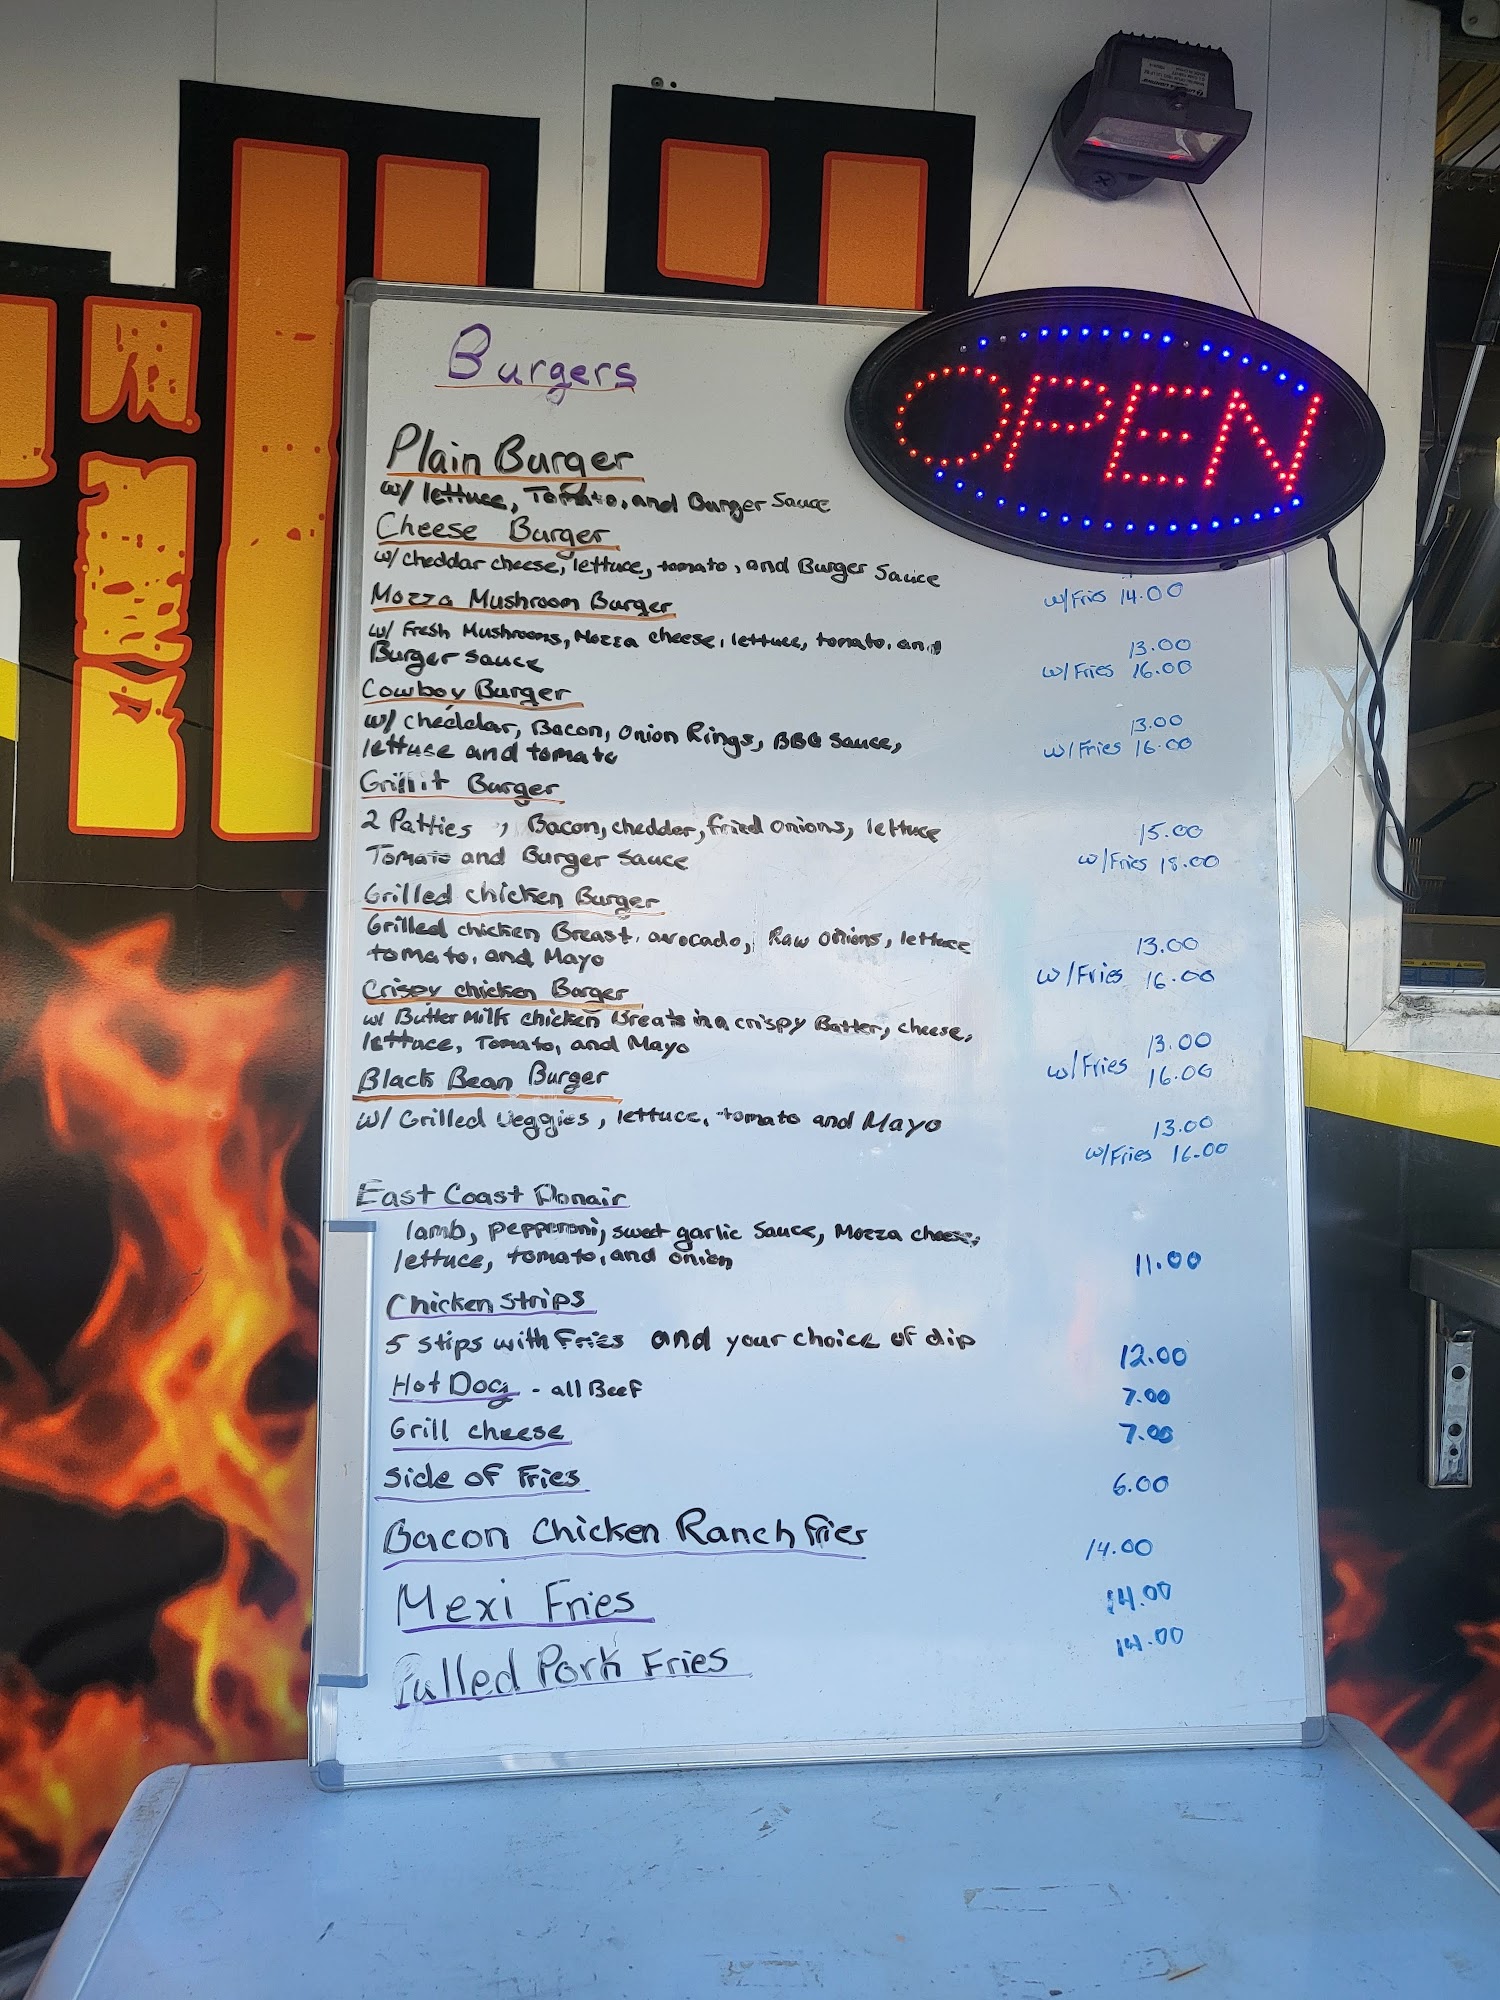 OPEN
Burgers
Plain Burger
w/ lettuce, Tomato, and Burger Sauce
Cheese Burger
w/ cheddar cheese, lettuce, tomato, and Burger Sauce
w/Fries 14.00
Mozza Mushroom Burger
w/ Fresh Mushrooms, Mozza cheese, lettuce, tomato, and
13.00
Burger sauce
w/Fries 16.00
Cowboy Burger
w/ cheddar, Bacon, Onion Rings, BBQ Sauce,
13.00
lettuse and tomato
w/Fries 16.00
Grill it Burger
2 Patties , Bacon, chedder, fried onions, lettuce
15.00
Tomato and Burger sauce
w/Fries 18.00
Grilled chicken Burger
Grilled chicken Breast, avocado, Raw onions, lettuce
13.00
tomato, and Mayo
w/Fries 16.00
Crispy chicken Burger
w/ Butter Milk chicken Breats in a crispy Batter, cheese,
13.00
lettuce, Tomato, and Mayo
w/Fries 16.00
Black Bean Burger
w/ Grilled veggies, lettuce, tomato and Mayo
13.00
w/Fries 16.00
East Coast Donair
lamb, pepperoni, sweet garlic Sauce, Mozza cheese,
lettuce, tomato, and onion
11.00
Chicken strips
5 stips with Fries and your choice of dip
12.00
Hot Dog - all Beef 7.00
Grill cheese 7.00
Side of Fries 6.00
Bacon Chicken Ranch fries 14.00
Mexi Fries 14.00
Pulled Pork Fries 14.00